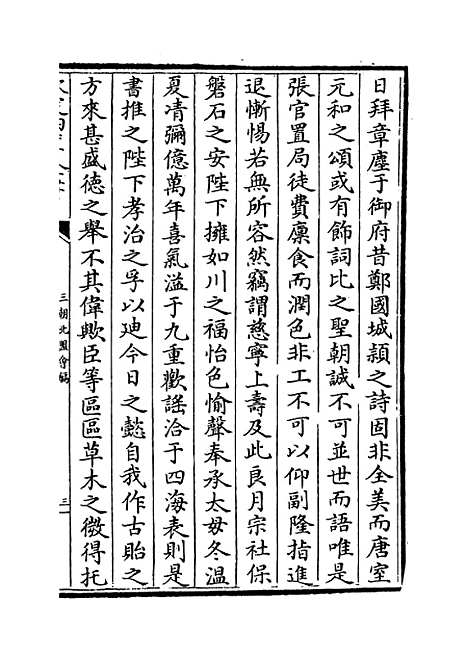 日拜章塵于御府昔鄭國城潁之詩固非全美而唐室
元和之頌或有飾詞比之聖朝誠不可並世而語唯是
張官置局徒費廩食而潤色非工不可以仰副隆指進
退慚惕若無所容然竊謂慈寧上壽及此良月宗社保
磐石之安陛下擁如川之福怡色愉聲奉承太母冬溫
夏凊彌億萬年喜氣溢于九重歡謠洽于四海表則是
書推之陛下孝治之孚以迪今日之懿自我作古貽之
方來甚盛德之舉不其偉歟臣等區區草木之微得托
三朝北盟會編